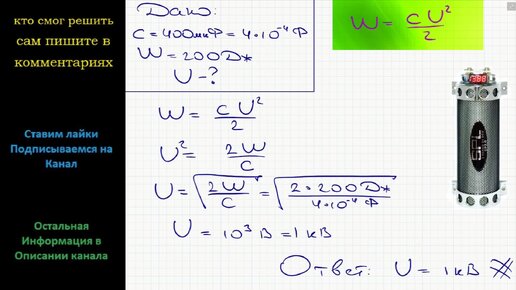 кто смог решить
сам пишите в
комментариях
Ставим лайки
Подписываемся на
Канал
Остальная
Информация в
Описании канала
Дано:
C = 400мкФ = 4·10⁻⁴ Ф
W = 200Дж
U - ?
W = CU²/2
W = CU²/2
U² = 2W/C
U = √(2W/C) = √(2·200Дж/4·10⁻⁴Ф)
U = 10³ В = 1кВ
Ответ: U = 1кВ
SPL